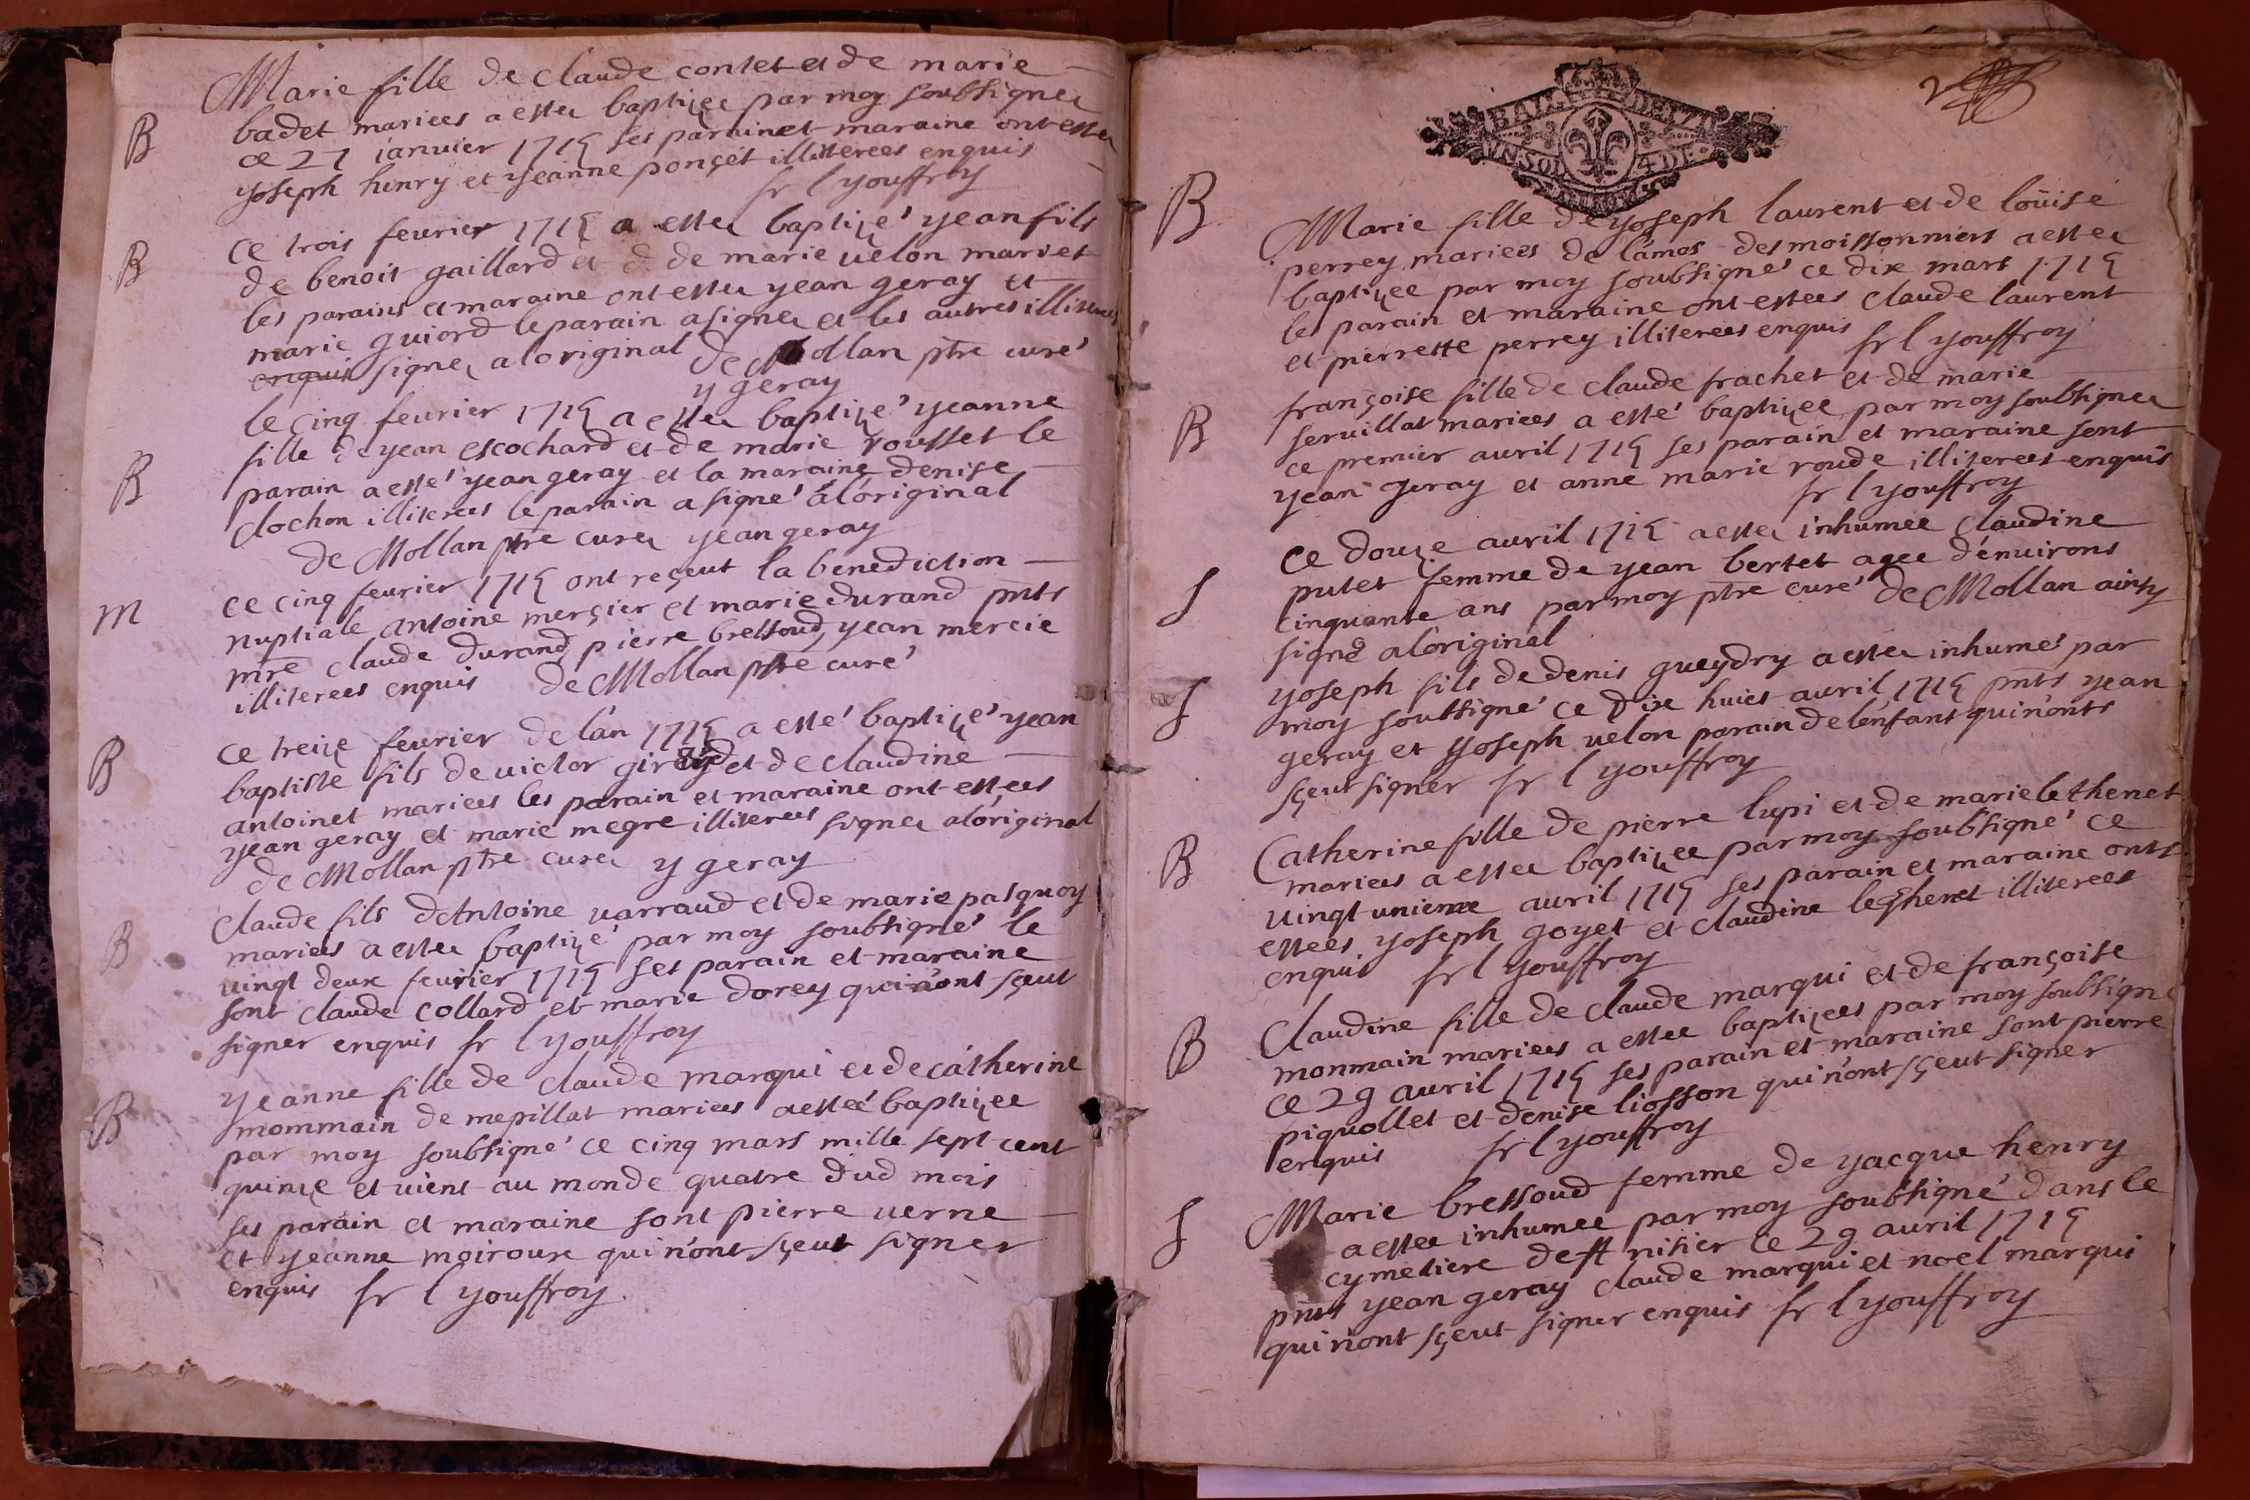 Marie fille de claude contet et de marie
B
badet mariees a estee baptizee par moy soubsignee
ce 27 ianuier 1715 ses parainet maraine ont estee
yoseph henry et yeanne ponçet illiterees enquis
fr l youffroy
ce trois feurier 1715 a estee baptizé yean fils
B
de benoit gaillard et de marie uelon mariet
les parains et maraine ont estee yean geray et
marie guiord le parain a signee et les autres illiterees
enquis signez a loriginal de Mollan ptre curé
y geray
le cinq feurier 1715 a estee baptizé yeanne
fille de yean escochard et de marie rousset le
B
parain a esté yean geray et la maraine denise
clochon illiterees le parain a signé a loriginal
de Mollan ptre curez yean geray
ce cinq feurier 1715 ont reçeut la benediction
m
nuptiale antoine merçier et marie durand pnts
mre claude durand pierre bressoud yean mercie
illiterees enquis de Mollan ptre curé
ce treize feurier de lan 1715 a esté baptizé yean
B
baptiste fils de uictor girard et de claudine
antoinet mariees les parain et maraine ont estees
yean geray et marie megre illiterees signez a loriginal
de Mollan ptre curez y geray
Claude fils dAntoine uarraud et de marie pasquoy
B
mariees a estee baptizé par moy soubsigné le
uingt deux feurier 1715 ses parain et maraine
sont claude collard et marie dorey qui nont sçeut
signer enquis fr l youffroy
yeanne fille de claude marqui et de catherine
B
mommain de mepillat mariees a esteé baptizee
par moy soubsigné ce cinq mars mille sept cent
quinze et uient au monde quatre dud mois
ses parain et maraine sont pierre uerne
et yeanne moiroux qui nont sçeut signer
enquis fr l youffroy
2
UN SOL 4 DE
B
Marie fille de yoseph laurent et de loüise
perrey mariees de lamos des moissonniers a estee
baptizee par moy soubsigné ce dix mars 1715
les parain et maraine ont estees claude laurent
et pierrette perrey illiterees enquis fr l youffroy
françoise fille de claude frachet et de marie
B
seruillat mariees a esté baptizee par moy soubsignee
ce premier auril 1715 ses parain et maraine sont
yean geray et anne marie roude illiterees enquis
fr l youffroy
ce douze auril 1715 a estee inhumee claudine
putet femme de yean bertet agee denuirons
S
cinquante ans par moy ptre curé de Mollan ainsy
signé a loriginal
yoseph fils de denis gueydry a estee inhumé par
S
moy soubsigné ce dix huict auril 1715 pnts yean
geray et yoseph uelon parain de lenfant qui nonts
sçeut signer fr l youffroy
Catherine fille de pierre lupi et de marie lethenet
B
mariees a estee baptizee par moy soubsigné ce
uingt unieme auril 1715 ses parain et maraine onts
estees yoseph goyet et claudine lethenet illiterees
enquis fr l youffroy
Claudine fille de claude marqui et de françoise
B
monmain mariees a estee baptizees par moy soubsigné
ce 29 auril 1715 ses parain et maraine sont pierre
piquollet et denise liosson qui nont sçeut signer
enquis fr l youffroy
Marie bressoud femme de yacque henry
S
a estee inhumee par moy soubsigné dans le
cymetiere de st nisier ce 29 auril 1715
pnts yean geray claude marqui et noel marqui
qui nont sçeut signer enquis fr l youffroy